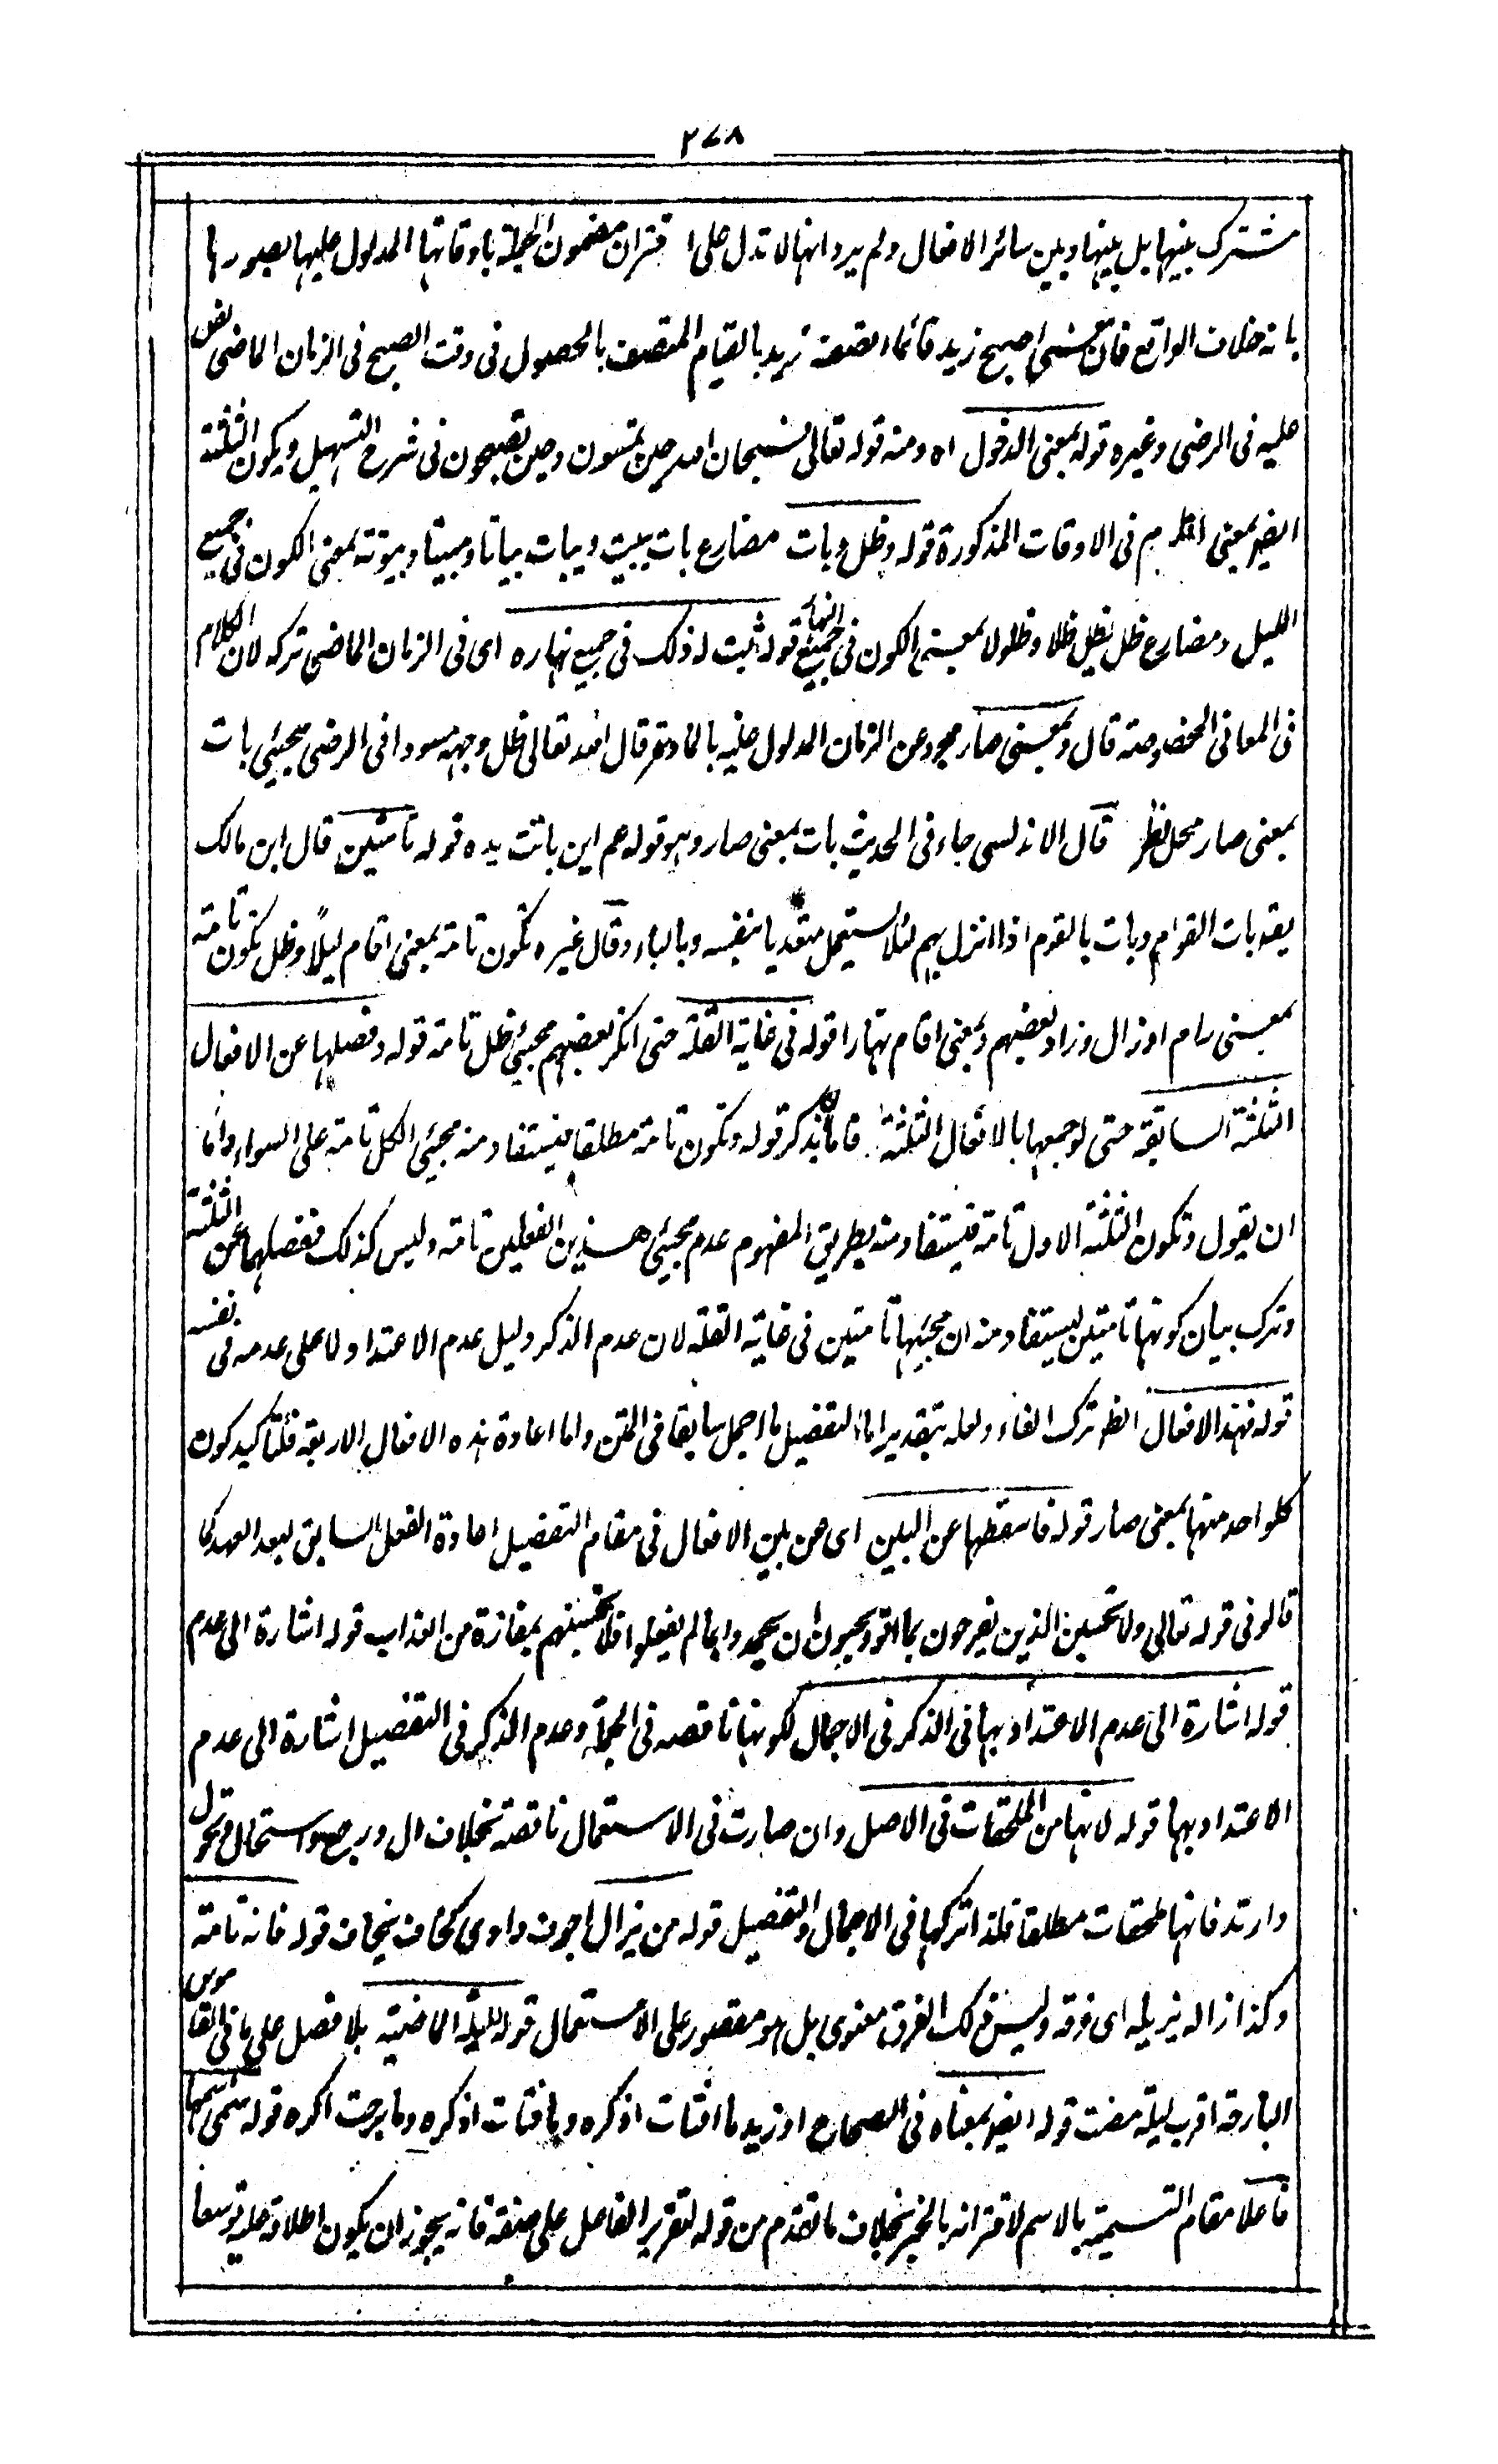 ٢٧٨
مشترك بينها بل بينها وبين سائر الافعال ولم يرد انها لا تدل على اقتران مضمون الجملة باوقاتها المدلول عليها بصورها
بانه خلاف الواقع فان معنى اصبح زيد قائما اتصف زيد بالقيام المتصف بالحصول فى وقت الصبح فى الزمان الماضى نص
عليه فى الرضى وغيره قوله بمعنى الدخول اه ومنه قوله تعالى فسبحان الله حين تمسون وحين تصبحون فى شرح التسهيل ويكون الثلثة
ايضا بمعنى اقام فى الاوقات المذكورة قوله وظل وبات مضارع بات يبيت ويبات بياتا ومبيتا وبيوتة بمعنى الكون فى جميع
الليل ومضارع ظل يظل ظلا وظلولا بمعنى الكون فى جميع النهار قوله ثبت له ذلك فى جميع نهاره اى فى الزمان الماضى تركه لان الكلام
فى المعانى المخصوصة قال وبمعنى صار مجرد عن الزمان المدلول عليه بالمادة قال الله تعالى ظل وجهه مسودا فى الرضى مجيئى بات
بمعنى صار محل نظر قال الاندلسى جاء فى الحديث بات بمعنى صار وهو قوله عم اين باتت يده قوله تامتين قال ابن مالك
يقه بات القوام وبات بالقوم اذا انزل بهم لئلا يستعمل متعديا بنفسه وبالباء وقال غيره تكون تامة بمعنى اقام ليلاً وظل تكون تامة
بمعنى دام او زال وزاد بعضهم وبمعنى اقام نهارا قوله فى غاية القلة حتى انكر بعضهم مجيئى ظل تامة قوله وفصلها عن الافعال
الثلثة السابقة حتى لو جمعها بالافعال الثلثة فاما ان يذكر قوله وتكون تامة مطلقا فيستفاد منه مجيئى الكل تامة على السواء واما
ان يقول وتكون الثلثة الاول تامة فيستفاد منه بطريق المفهوم عدم مجيئى هذين الفعلين تامة وليس كذلك ففصلها عن الثلثة
وترك بيان كونها تامتين ليستفاد منه ان مجيئها تامتين فى غاية القلة لان عدم الذكر دليل عدم الاعتداد لا على عدمه فى نفسه
قوله فهذه الافعال الظ ترك الفاء ولعله بتقدير اما لتفصيل ما اجمل سابقا فى المتن واما اعادة هذه الافعال الاربعة فلتاكيد كون
كلواحد منها بمعنى صار قوله فاسقطها عن البين اى عن بين الافعال فى مقام التفصيل اعادة الفعل السابق لبعد العهد كما
قالو فى قوله تعالى ولا تحسبن الذين يفرحون بما اتو ويحبون ان يحمدوا بما لم يفعلوا فلا تحسبنهم بمفازة من العذاب قوله اشارة الى عدم
قوله اشارة الى عدم الاعتداد بها فى الذكر فى الاجمال لكونها ناقصه فى الجملة وعدم الذكر فى التفصيل اشارة الى عدم
الاعتداد بها قوله لانها من الملحقات فى الاصل وان صارت فى الاستعمال ناقصة بخلاف ال ورجع واستحال وتحول
وارتد فانها ملحقات مطلقا فلذا تركها فى الاجمال والتفصيل قوله من يزال اجوف واوى كخاف يخاف قوله فانه تامة
وكذا زاله يزيله اى فرقه وليس ذلك الفرق معنوى بل هو مقصور على الاستعمال قوله لليلة الماضية بلا فصل على ما فى القاموس
البارحة اقرب ليلة مضت قوله ايضا بمعناه فى الصحاح ابو زيد ما افتات اذكره وما فتات اذكره وما برحت اكره قوله سمى اسمها
فاعلا مقام التسمية بالاسم لاقترانه بالخبر بخلاف ما تقدم من قوله لتقرير الفاعل على صفة فانه يجوز ان يكون اطلاقه عليه توسعا